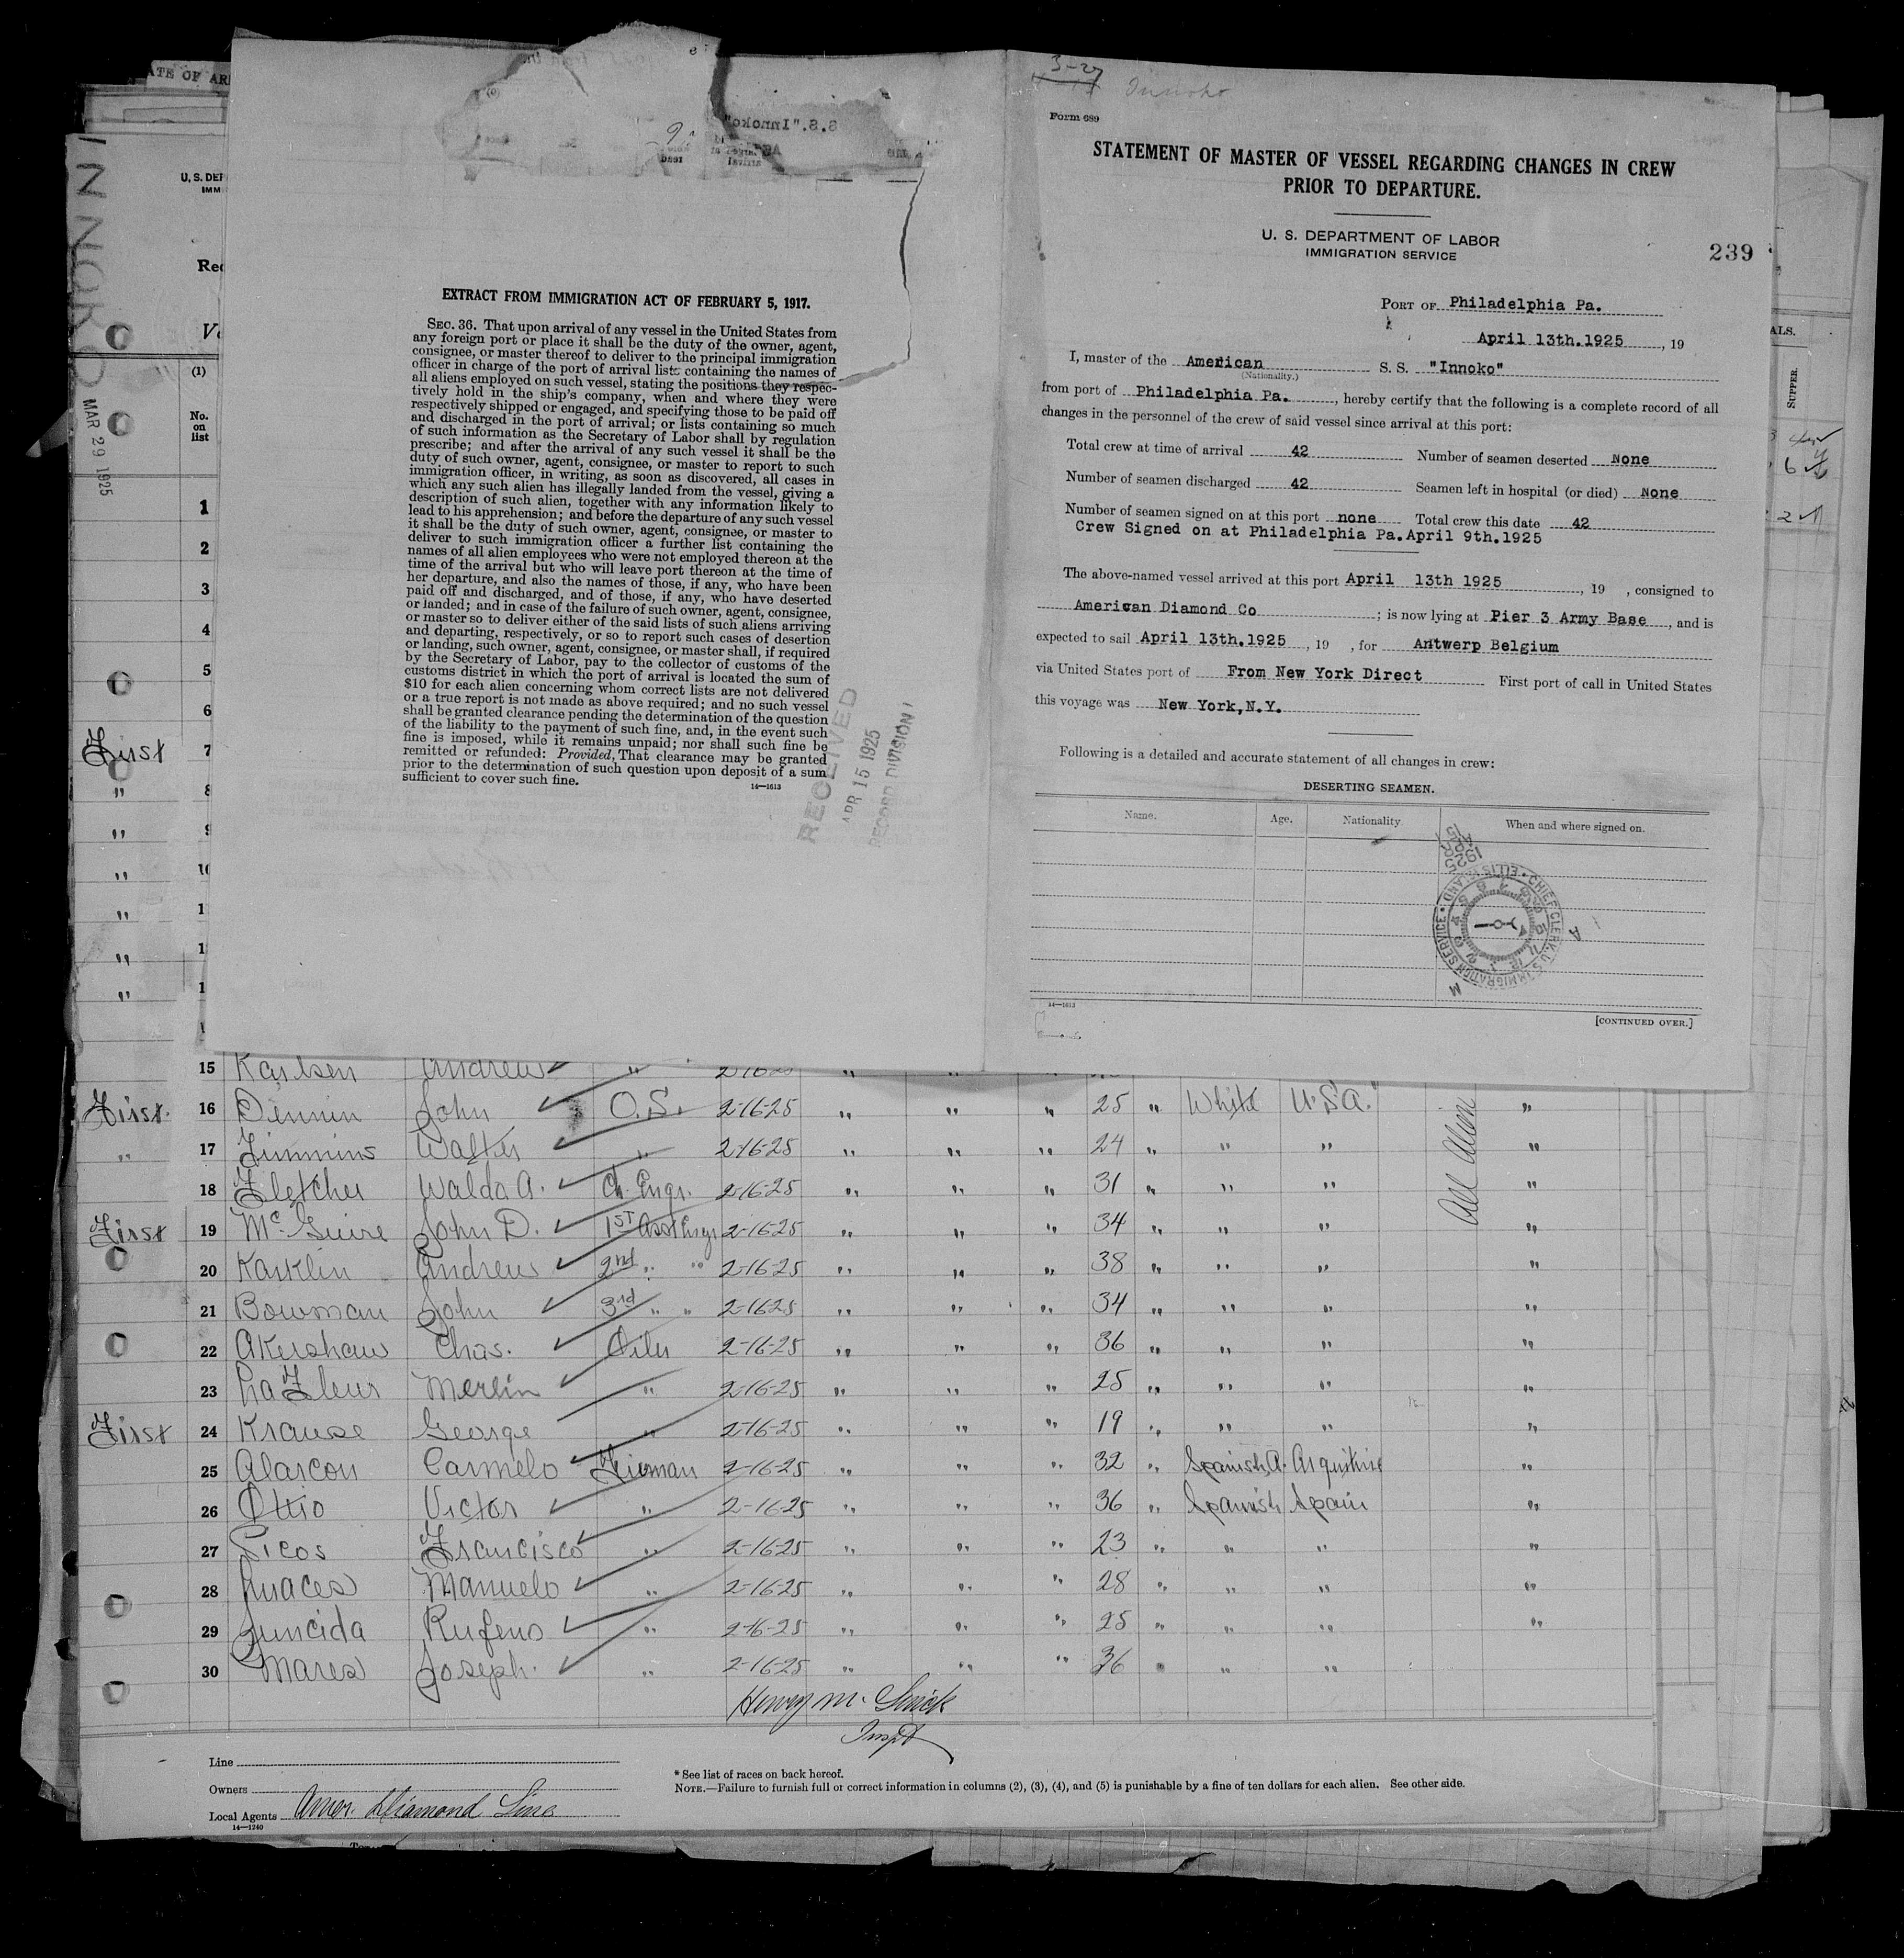 ATE OF AR
INNOKO
MAR 29 1925
U. S. DEP
IMMI
Rec
(1)
No.
on
list
1
2
3
4
5
6
First 7
" 8
" 9
" 10
" 1
" 1
" 1
S.S."Innoko"
EXTRACT FROM IMMIGRATION ACT OF FEBRUARY 5, 1917.
SEC. 36. That upon arrival of any vessel in the United States from
any foreign port or place it shall be the duty of the owner, agent,
consignee, or master thereof to deliver to the principal immigration
officer in charge of the port of arrival lists containing the names of
all aliens employed on such vessel, stating the positions they respec-
tively hold in the ship's company, when and where they were
respectively shipped or engaged, and specifying those to be paid off
and discharged in the port of arrival; or lists containing so much
of such information as the Secretary of Labor shall by regulation
prescribe; and after the arrival of any such vessel it shall be the
duty of such owner, agent, consignee, or master to report to such
immigration officer, in writing, as soon as discovered, all cases in
which any such alien has illegally landed from the vessel, giving a
description of such alien, together with any information likely to
lead to his apprehension; and before the departure of any such vessel
it shall be the duty of such owner, agent, consignee, or master to
deliver to such immigration officer a further list containing the
names of all alien employees who were not employed thereon at the
time of the arrival but who will leave port thereon at the time of
her departure, and also the names of those, if any, who have been
paid off and discharged, and of those, if any, who have deserted
or landed; and in case of the failure of such owner, agent, consignee,
or master so to deliver either of the said lists of such aliens arriving
and departing, respectively, or so to report such cases of desertion
or landing, such owner, agent, consignee, or master shall, if required
by the Secretary of Labor, pay to the collector of customs of the
customs district in which the port of arrival is located the sum of
$10 for each alien concerning whom correct lists are not delivered
or a true report is not made as above required; and no such vessel
shall be granted clearance pending the determination of the question
of the liability to the payment of such fine, and, in the event such
fine is imposed, while it remains unpaid; nor shall such fine be
remitted or refunded: Provided, That clearance may be granted
prior to the determination of such question upon deposit of a sum
sufficient to cover such fine.
14—1613
RECEIVED
APR 15 1925
RECORD DIVISION
3-27
Innoko
Form 689
STATEMENT OF MASTER OF VESSEL REGARDING CHANGES IN CREW
PRIOR TO DEPARTURE.
U. S. DEPARTMENT OF LABOR
IMMIGRATION SERVICE
239
PORT OF Philadelphia Pa.
April 13th.1925, 19
I, master of the American S. S. "Innoko"
(Nationality.)
from port of Philadelphia Pa., hereby certify that the following is a complete record of all
changes in the personnel of the crew of said vessel since arrival at this port:
Total crew at time of arrival 42 Number of seamen deserted None
Number of seamen discharged 42 Seamen left in hospital (or died) None
Number of seamen signed on at this port none Total crew this date 42
Crew Signed on at Philadelphia Pa.April 9th.1925
The above-named vessel arrived at this port April 13th 1925, 19 , consigned to
American Diamond Co; is now lying at Pier 3 Army Base, and is
expected to sail April 13th.1925, 19 , for Antwerp Belgium
via United States port of From New York Direct First port of call in United States
this voyage was New York,N.Y.
Following is a detailed and accurate statement of all changes in crew:
DESERTING SEAMEN.
Name. Age. Nationality When and where signed on.
CHIEF CLERK, U.S. IMMIGRATION SERVICE ELLIS ISLAND
1925 APR 15
A M
14—1613
[CONTINUED OVER.]
ALS.
SUPPER.
15 Karlsen Andrew " 2-16-25 " " "
First. 16 Dennin John O.S. 2-16-25 " " " 25 " White U.S.A. "
" 17 Timmins Walter " 2-16-25 " " " 24 " " " "
18 Fletcher Waldo A. Ch. Engr. 2-16-25 " " " 31 " " " "
First 19 McGuire John D. 1ST Asst Engr 2-16-25 " " " 34 " " " "
20 Karklin Andrew 2nd " " 2-16-25 " " " 38 " " " "
21 Bowman John 3rd " " 2-16-25 " " " 34 " " " "
22 Akershaw Chas. Oiler 2-16-25 " " " 36 " " " "
23 LaFleur Merlin " 2-16-25 " " " 25 " " " "
First 24 Krause George " 2-16-25 " " " 19 " " " "
25 Alarcon Carmelo Fireman 2-16-25 " " " 32 " Spanish A. "
26 Ottio Victor " 2-16-25 " " " 36 " Spanish Spain "
27 Picos Francisco " 2-16-25 " " " 23 " " " "
28 Manuelo " 2-16-25 " " " 28 " " " "
29 Juncida Rufeno " 2-16-25 " " " 25 " " " "
30 Mares Joseph. " 2-16-25 " " " 36 " " "
All Alien
Henry M.
Inspt
Line
Owners
Local Agents Amer. Diamond Line
14—1240
* See list of races on back hereof.
NOTE.—Failure to furnish full or correct information in columns (2), (3), (4), and (5) is punishable by a fine of ten dollars for each alien. See other side.